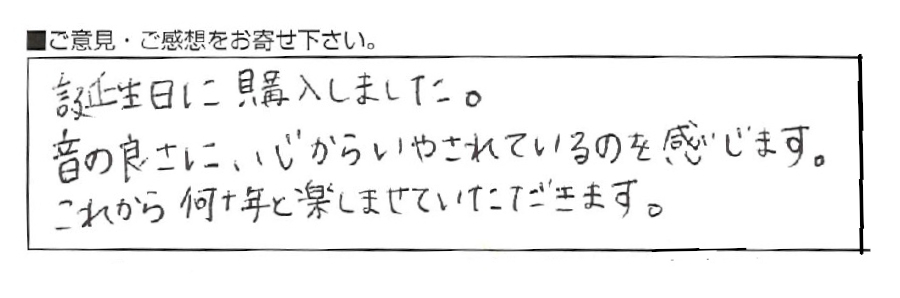 ■ご意見・ご感想をお寄せ下さい。
誕生日に購入しました。
音の良さに、心からいやされているのを感じます。
これから何十年と楽しませていただきます。